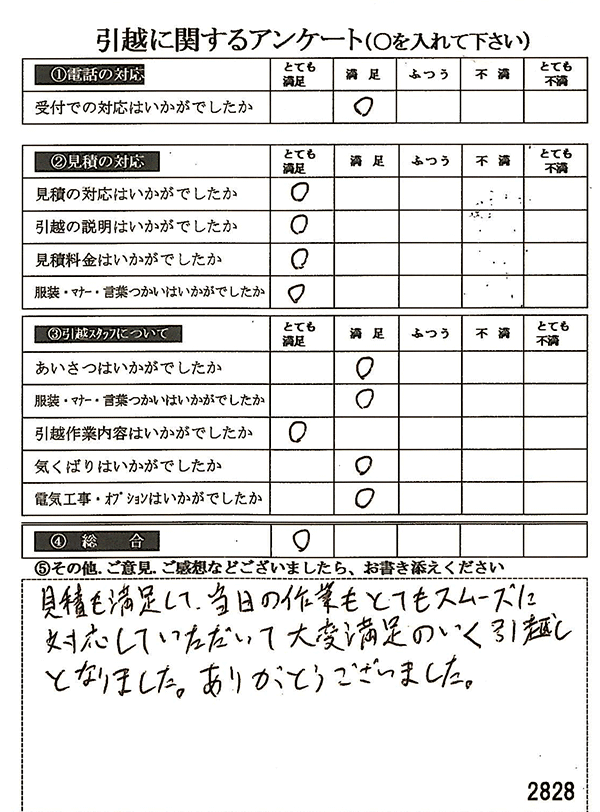 引越に関するアンケート(○を入れて下さい)
①電話の対応 とても満足 満足 ふつう 不満 とても不満
受付での対応はいかがでしたか ○
②見積の対応 とても満足 満足 ふつう 不満 とても不満
見積の対応はいかがでしたか ○
引越の説明はいかがでしたか ○
見積料金はいかがでしたか ○
服装・マナー・言葉つかいはいかがでしたか ○
③引越スタッフについて とても満足 満足 ふつう 不満 とても不満
あいさつはいかがでしたか ○
服装・マナー・言葉つかいはいかがでしたか ○
引越作業内容はいかがでしたか ○
気くばりはいかがでしたか ○
電気工事・オプションはいかがでしたか ○
④ 総 合 ○
⑤その他.ご意見.ご感想などございましたら、お書き添えください
見積も満足して、当日の作業もとてもスムーズに
対応していただいて大変満足のいく引越し
となりました。ありがとうございました。
2828